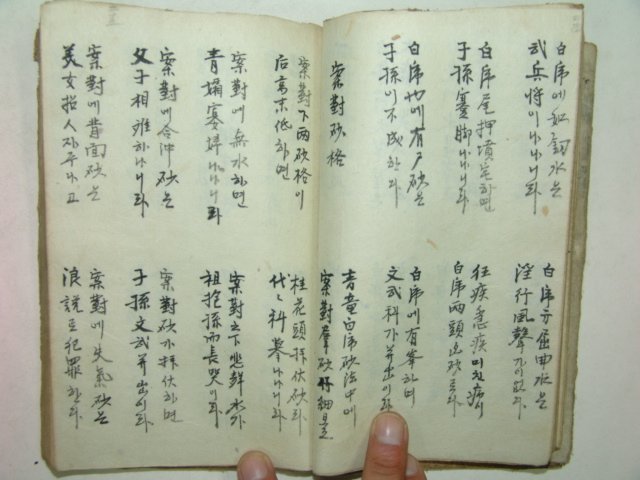 白虎에如釖水는
武兵將이나나니라
白虎方屈曲水는
淫行風聲가이없다
白虎尾押墳宅하면
子孫이蹇脚나나니라
狂疾急疾미친病이
白虎兩頭出砂로다
白虎也에有戶砂는
子孫이不成한다
白虎에有峯하며
文武科가并出이라
案對砂格
青龍白虎砂法中에
案對羣砂仔細見
案對下兩砂格이
后高末低하면
桂花頭拜伏砂라
代々科擧나나니라
案對에無水하면
青孀寡婦나나니라
案對之下水가
祖抱孫而長哭이라
案對에合冲砂는
父子相離하나니라
案對砂가拜伏하면
子孫文武并出이라
案對에背面砂는
美女招人자주나고
案對에失氣砂는
浪說로犯罪한다